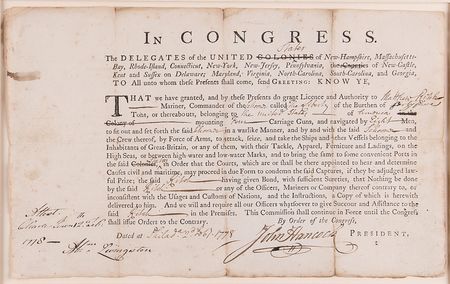 IN CONGRESS.
States
The DELEGATES of the UNITED COLONIES of New-Hampshire, Massachusetts-
Bay, Rhode-Island, Connecticut, New-York, New-Jersey, Pennsylvania, the Counties of New-Castle,
Kent and Sussex on Delaware; Maryland, Virginia, North-Carolina, South-Carolina, and Georgia,
TO All unto whom these Presents shall come, send GREETING: KNOW YE,
THAT we have granted, and by these Presents do grant Licence and Authority to
Mariner, Commander of the called The of the Burthen of
Tons, or thereabouts, belonging to the United States of America in the
Colony of mounting Four Carriage Guns, and navigated by Eight Men,
to fit out and set forth the said in a warlike Manner, and by and with the said
and the Crew thereof, by Force of Arms, to attack, seize, and take the Ships and other Vessels belonging to the
Inhabitants of Great-Britain, or any of them, with their Tackle, Apparel, Furniture and Ladings, on the
High Seas, or between high water and low-water Marks, and to bring the same to some convenient Ports in
the said Colonies, in Order that the Courts, which are or shall be there appointed to hear and determine
Causes civil and maritime, may proceed in due Form to condemn the said Captures, if they be adjudged law-
ful Prize; the said having given Bond, with sufficient Sureties, that Nothing be done
by the said or any of the Officers, Mariners or Company thereof contrary to, or
inconsistent with the Usages and Customs of Nations, and the Instructions, a Copy of which is herewith
delivered to him. And we will and require all our Officers whatsoever to give Succour and Assistance to the
said in the Premises. This Commission shall continue in Force until the Congress
shall issue Orders to the Contrary.
By Order of the Congress,
Dated at 1778 John Hancock PRESIDENT,
Attest
1778
Livingston